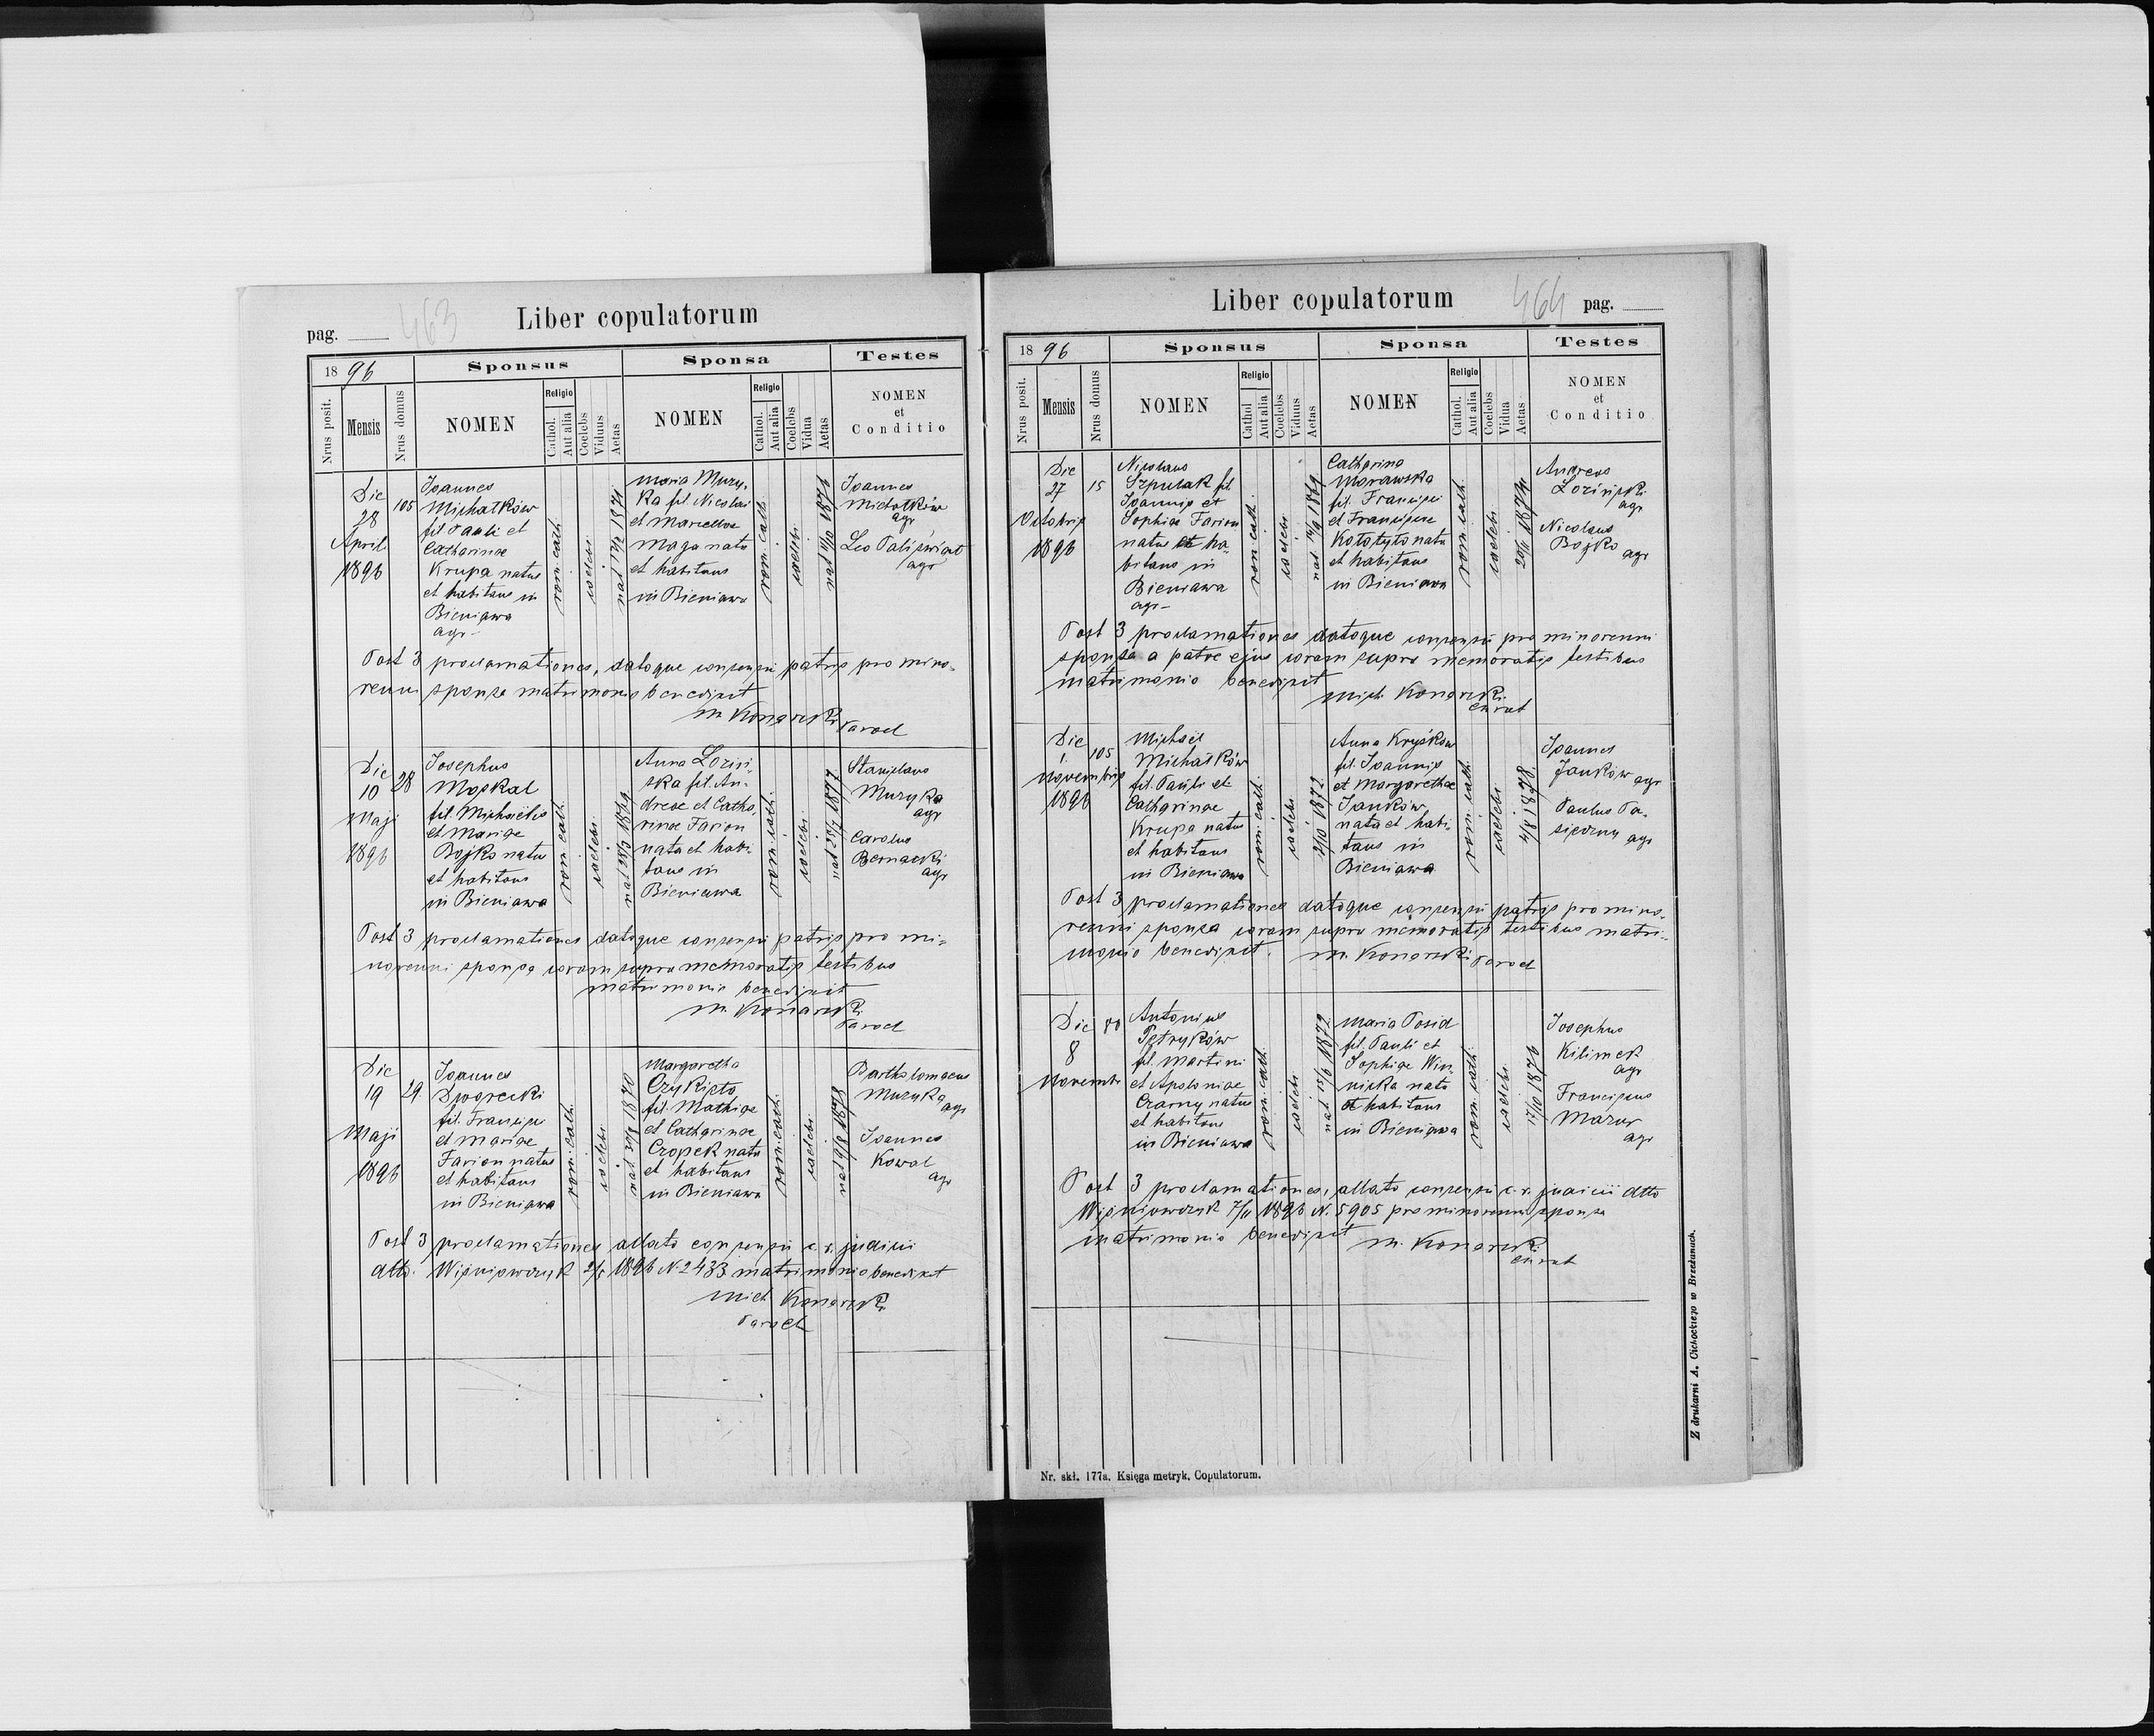 463
Liber copulatorum
pag.
1896
Sponsus
Sponsa
Testes
Nrus posit.
Mensis
Nrus domus
NOMEN
Religio
Cathol.
Aut alia
Coelebs
Viduus
Aetas
NOMEN
Religio
Cathol.
Aut alia
Coelebs
Vidua
Aetas
NOMEN
et
Conditio
Die
28
April
1896
105
Joannes
Michałków
fil Pauli et
Catharinae
Krupa natus
et habitans in
Bieniawa
agr
rom. cath.
caelebs
Maria Muzy-
ka fil. Nicolai
et Mariellae
Maga nata
et habitans
in Bieniawa
rom. cath.
caelebs
Joannes
Michałków
agr
Leo
agr
Post 3 proclamationes, datoque consensu patris pro mino-
renni sponsa matrimonio benedixit
M. Konarski
Paroch
Die
10
Maji
1896
28
Josephus
Moskal
fil. Michaelis
et Mariae
Bojko natus
et habitans
in Bieniawa
rom. cath.
caelebs
Anna Łozin-
ska fil. An-
dreae et Catha-
rinae Farion
nata et habi-
tans in
Bieniawa
rom. cath.
caelebs
Stanislaus
Muzyka
agr
Carolus
Bernacki
agr
Post 3 proclamationes datoque consensu patris pro mi-
norenni sponsa coram supra memoratis testibus
matrimonio benedixit
M. Konarski
Paroch
Die
19
Maji
1896
29
Joannes
Dworecki
fil. Francisci
et Mariae
Farion natus
et habitans
in Bieniawa
rom. cath.
caelebs
Margaretha
fil. Mathiae
et Catharinae
Czopek nata
et habitans
in Bieniawa
rom. cath.
caelebs
Bartholomaeus
Muzyka
agr
Joannes
Kowal
agr
Post 3 proclamationes allato consensu c. r. judicii
dtto. Wiśniowczyk 2/5 1896 N. 2433 matrimonio benedixit
Mich Konarski
Paroch
Liber copulatorum
464
pag.
1896
Sponsus
Sponsa
Testes
Nrus posit.
Mensis
Nrus domus
NOMEN
Religio
Cathol
Aut alia
Coelebs
Viduus
Aetas
NOMEN
Religio
Cathol.
Aut alia
Coelebs
Vidua
Aetas
NOMEN
et
Conditio
Die
27
Octobris
1896
15
Nicolaus
Szpulak fil
Joannis et
Sophiae Farion
natus et ha-
bitans in
Bieniawa
agr
rom cath.
caelebs
nat 14/9 1869
Catharina
Morawska
fil. Francisci
et Franciscae
Kołotyło nata
et habitans
in Bieniawa
rom. cath.
caelebs
20/11 1874
Andreas
Łoziński
agr
Nicolaus
Bojko
agr
Post 3 proclamationes datoque consensu pro minorenni
sponsa a patre ejus coram supra memoratis testibus
matrimonio benedixit
Mich. Konarski
Curat
Die
1.
Novembris
1896
105
Michael
Michałków
fil. Pauli et
Catharinae
Krupa natus
et habitans
in Bieniawa
rom. cath.
caelebs
Anna Kryśków
fil. Joannis
et Margarethae
Janków
nata et habi-
tans in
Bieniawa
rom. cath.
caelebs
4/8 1878
Joannes
Janków agr
Paulus Pa-
sieczny agr
Post 3 proclamationes datoque consensu patris pro mino-
renni sponsa coram supra memoratis testibus matri-
monio benedixit. M. Konarski
Paroch
Die
8
Novembr
80
Antonius
Petryków
fil. Martini
et Apoloniae
Czarny natus
et habitans
in Bieniawa
rom. cath.
caelebs
nat 15/6 1872
Maria Posid
fil. Pauli et
Sophiae Win-
nicka nata
et habitans
in Bieniawa
rom. cath.
caelebs
17/10 1876
Josephus
Kilimek
agr
Franciscus
Mazur
agr
Post 3 proclamationes, allato consensu c. r. judicii dtto
Wiśniowczyk 7/11 1896 N. 5905 pro minorenni sponsa
matrimonio benedixit M. Konarski
Curat
Nr. skł. 177a. Księga metryk. Copulatorum.
Z drukarni A. Cichockiego w Brzeżanach.